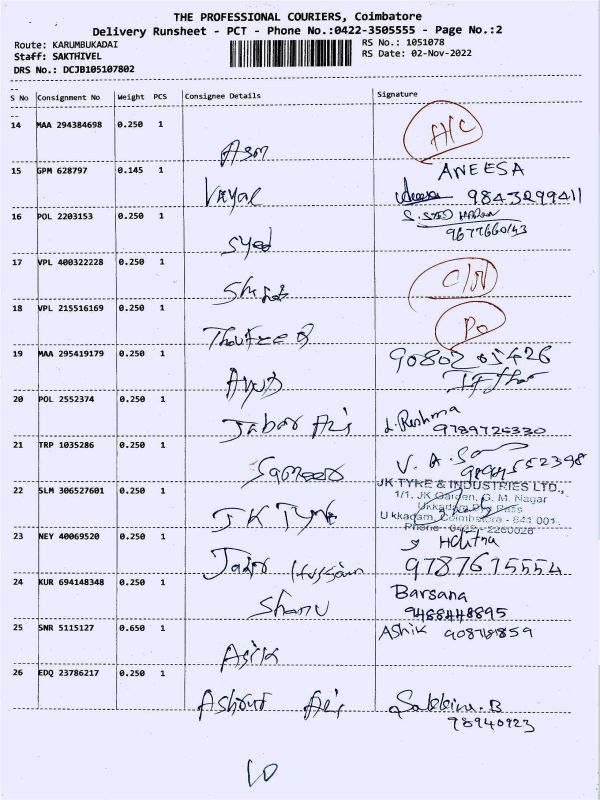 THE PROFESSIONAL COURIERS, Coimbatore
Delivery Runsheet - PCT - Phone No.:0422-3505555 - Page No.:2
Route: KARUMBUKADAI RS No.: 1051078
Staff: SAKTHIVEL RS Date: 02-Nov-2022
DRS No.: DCJB105107802
S No Consignment No Weight PCS Consignee Details Signature
14 MAA 294384698 0.250 1
15 GPM 628797 0.145 1 ANEESA
Vayal 9843299411
16 POL 2203153 0.250 1
Syed 9677660143
17 VPL 400322228 0.250 1
18 VPL 215516169 0.250 1
19 MAA 295419179 0.250 1 9080205426
Ayub
20 POL 2552374 0.250 1 Reshma
9789725330
21 TRP 1035286 0.250 1
Sameera
22 SLM 306527601 0.250 1 JK TYRE & INDUSTRIES LTD.,
1/1, JK Garden, G. M. Nagar
Ukkadam Bye Pass
JK TYRE Ukkadam, Coimbatore - 641 001
Phone : 0422 - 2260026
23 NEY 40069520 0.250 1
Hussain
24 KUR 694148348 0.250 1 Barsana
Shanu 9488448895
25 SNR 5115127 0.650 1 Ashik
Asik
26 EDQ 23786217 0.250 1
98940923